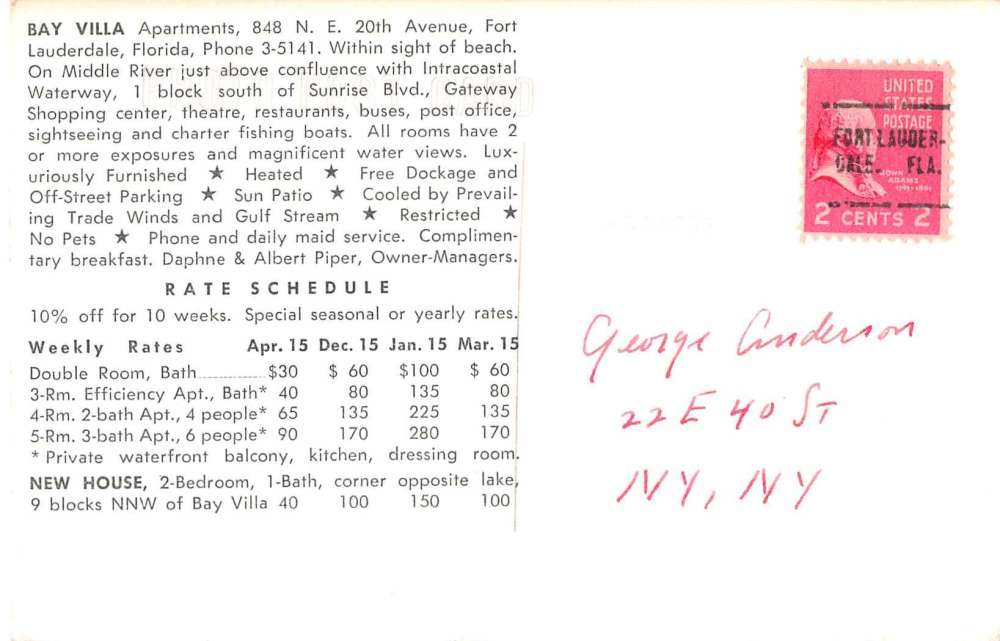 BAY VILLA Apartments, 848 N. E. 20th Avenue, Fort
Lauderdale, Florida, Phone 3-5141. Within sight of beach.
On Middle River just above confluence with Intracoastal
Waterway, 1 block south of Sunrise Blvd., Gateway
Shopping center, theatre, restaurants, buses, post office,
sightseeing and charter fishing boats. All rooms have 2
or more exposures and magnificent water views. Lux-
uriously Furnished ★ Heated ★ Free Dockage and
Off-Street Parking ★ Sun Patio ★ Cooled by Prevail-
ing Trade Winds and Gulf Stream ★ Restricted ★
No Pets ★ Phone and daily maid service. Complimen-
tary breakfast. Daphne & Albert Piper, Owner-Managers.
RATE SCHEDULE
10% off for 10 weeks. Special seasonal or yearly rates.
Weekly Rates Apr. 15 Dec. 15 Jan. 15 Mar. 15
Double Room, Bath $30 $ 60 $100 $ 60
3-Rm. Efficiency Apt., Bath* 40 80 135 80
4-Rm. 2-bath Apt., 4 people* 65 135 225 135
5-Rm. 3-bath Apt., 6 people* 90 170 280 170
* Private waterfront balcony, kitchen, dressing room.
NEW HOUSE, 2-Bedroom, 1-Bath, corner opposite lake,
9 blocks NNW of Bay Villa 40 100 150 100
UNITED
STATES
POSTAGE
FORT LAUDER-
DALE. FLA.
JOHN
ADAMS
1797-1801
2 CENTS 2
George Anderson
22 E 40 ST
NY, NY